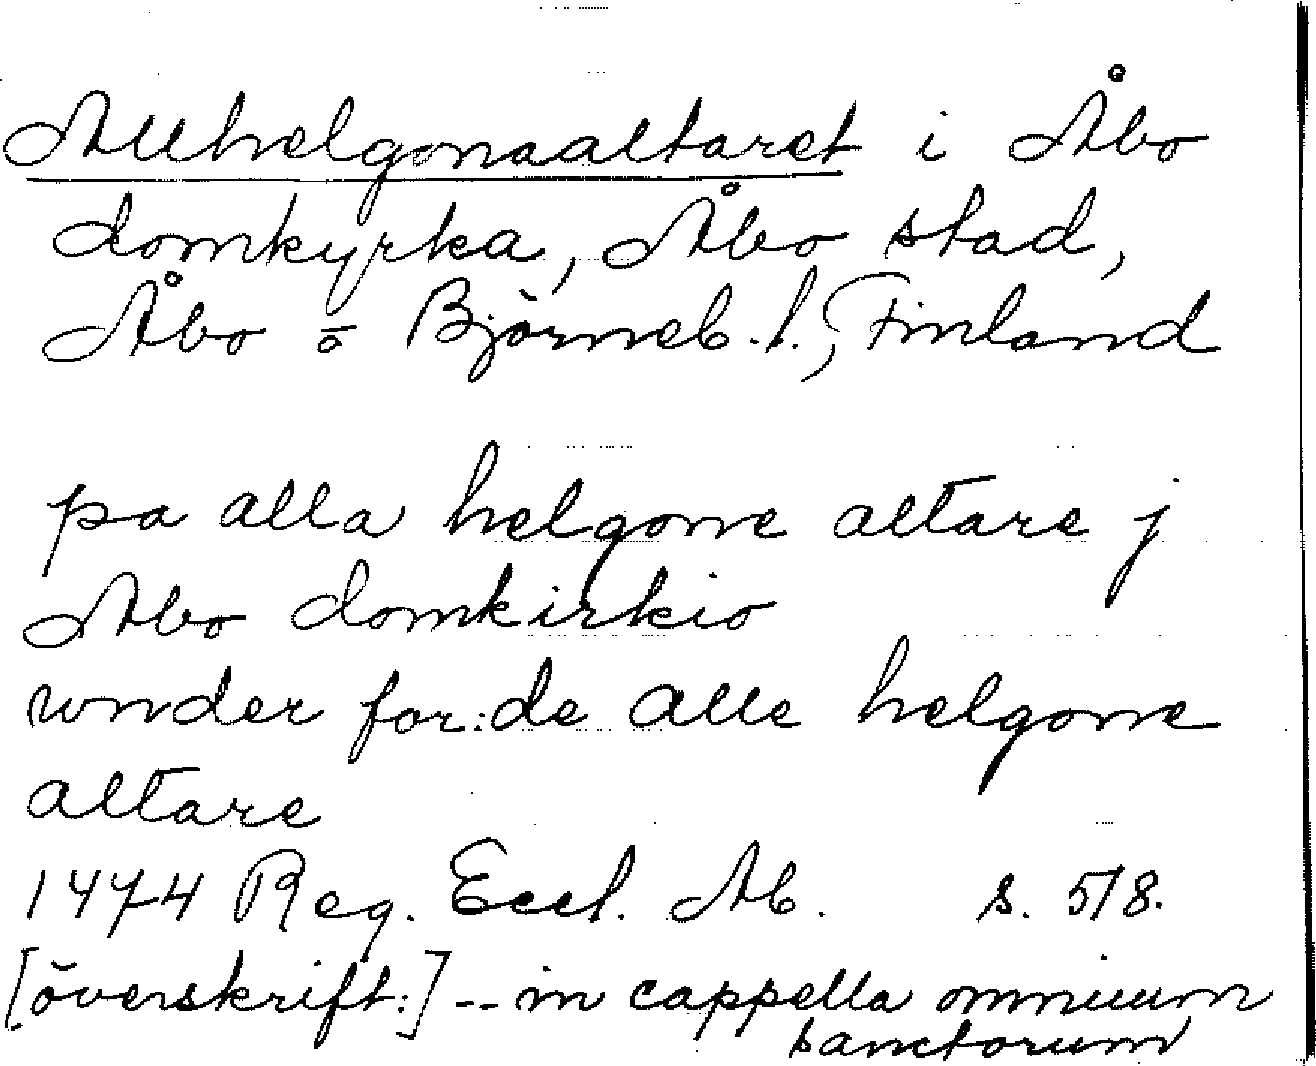 Allhelgonaaltaret i Åbo
domkyrka, Åbo stad,
Åbo o Björneb. l., Finland
pa alla helgone altare j
Abo domkirkio
wnder for:de alle helgone
altare
1474 Reg. Eccl. Ab. s. 518.
[överskrift:] -- in cappella omnium
sanctorum